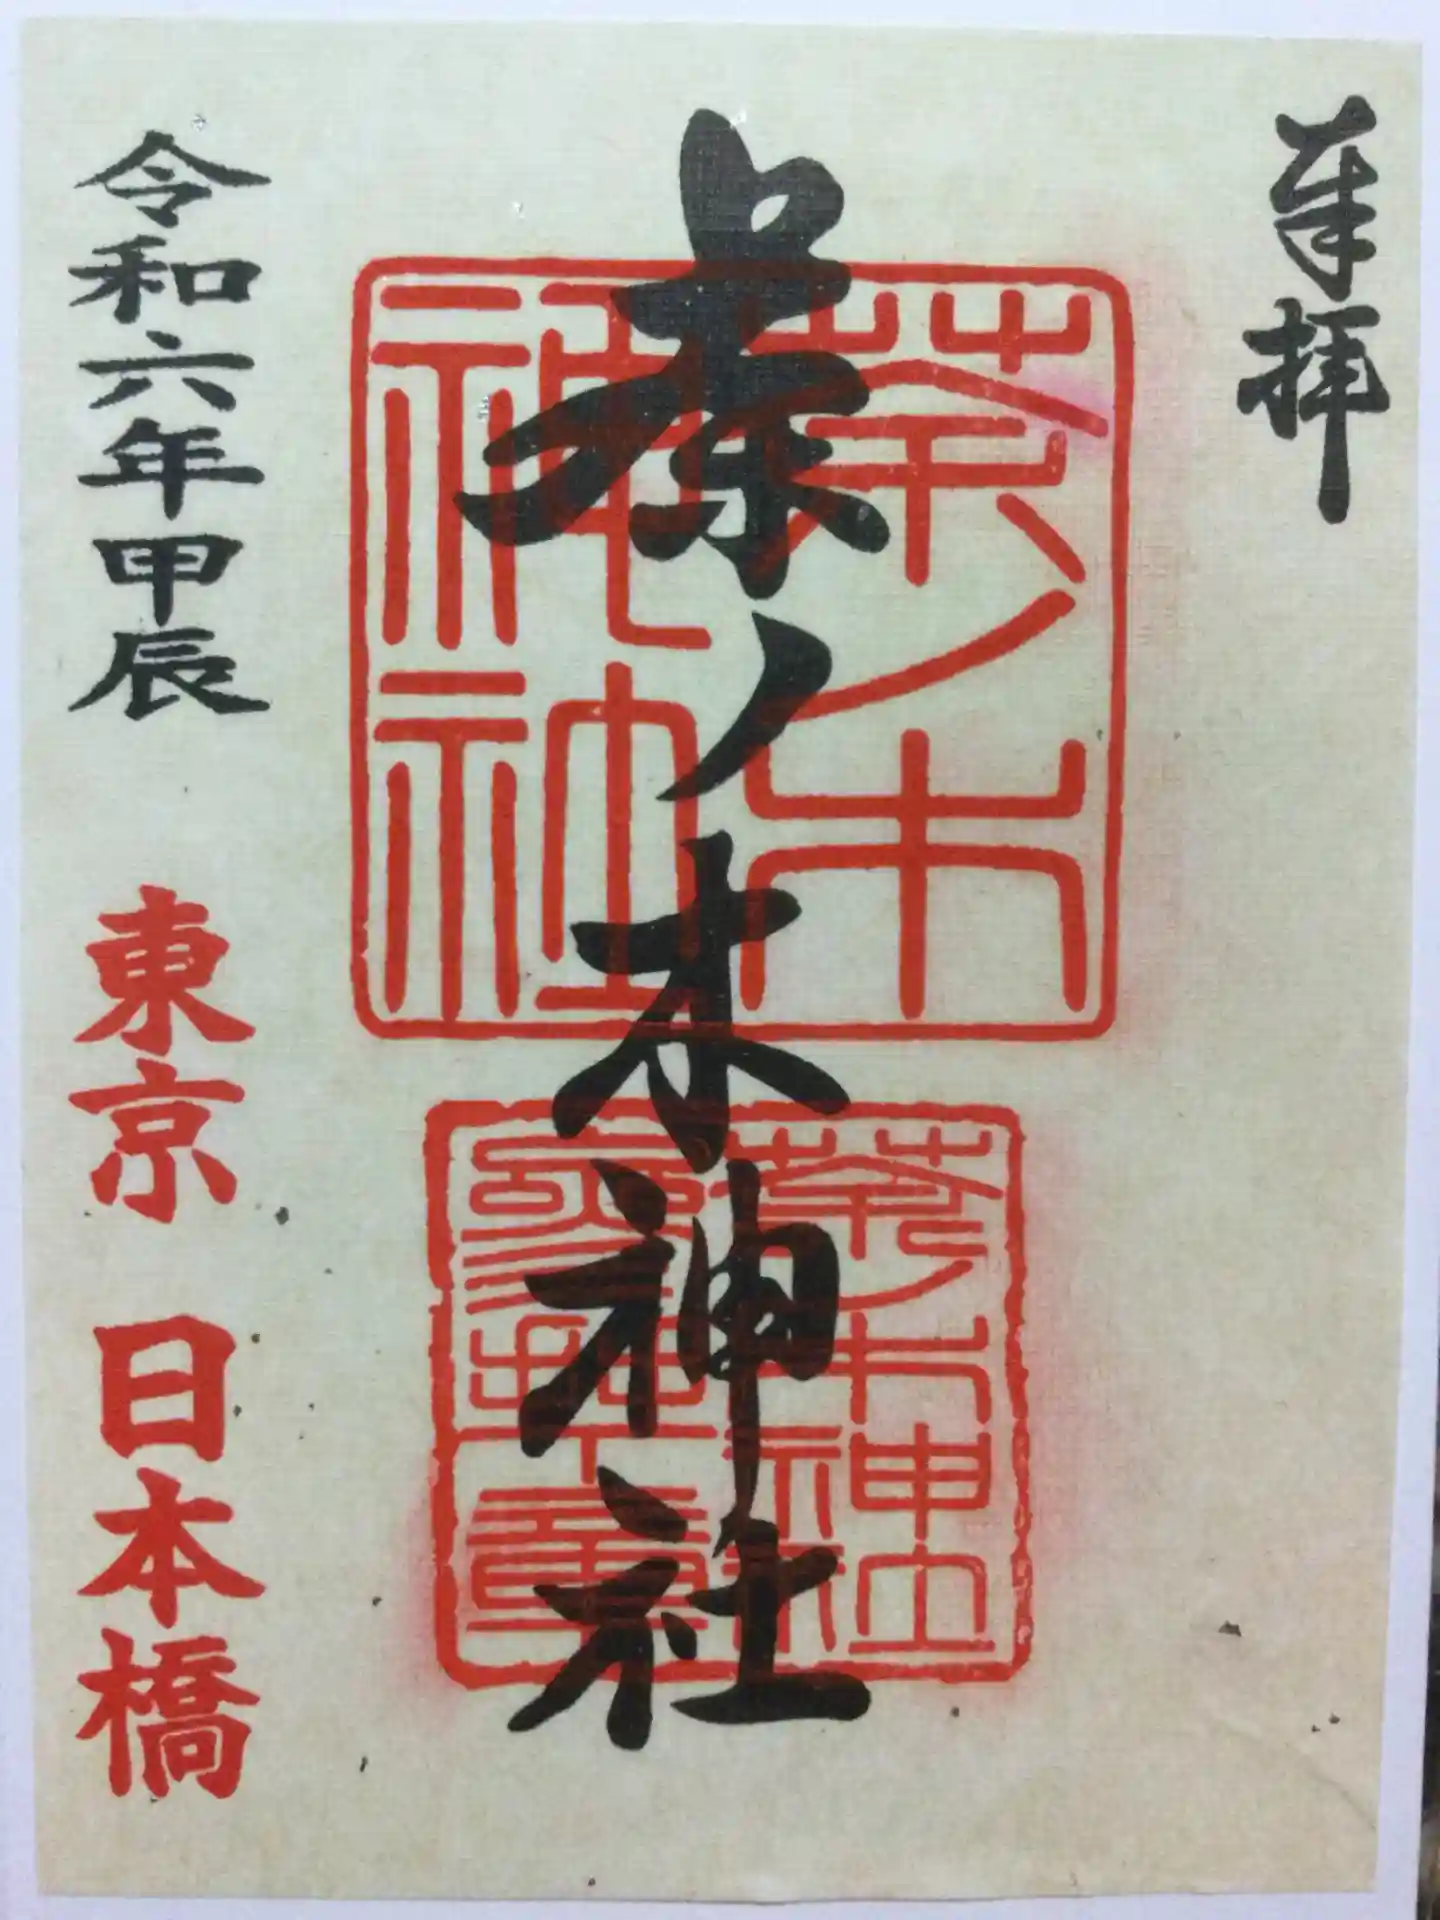 奉拝
茶ノ木神社
令和六年甲辰
東京 日本橋
茶ノ木
神社
茶ノ木神社